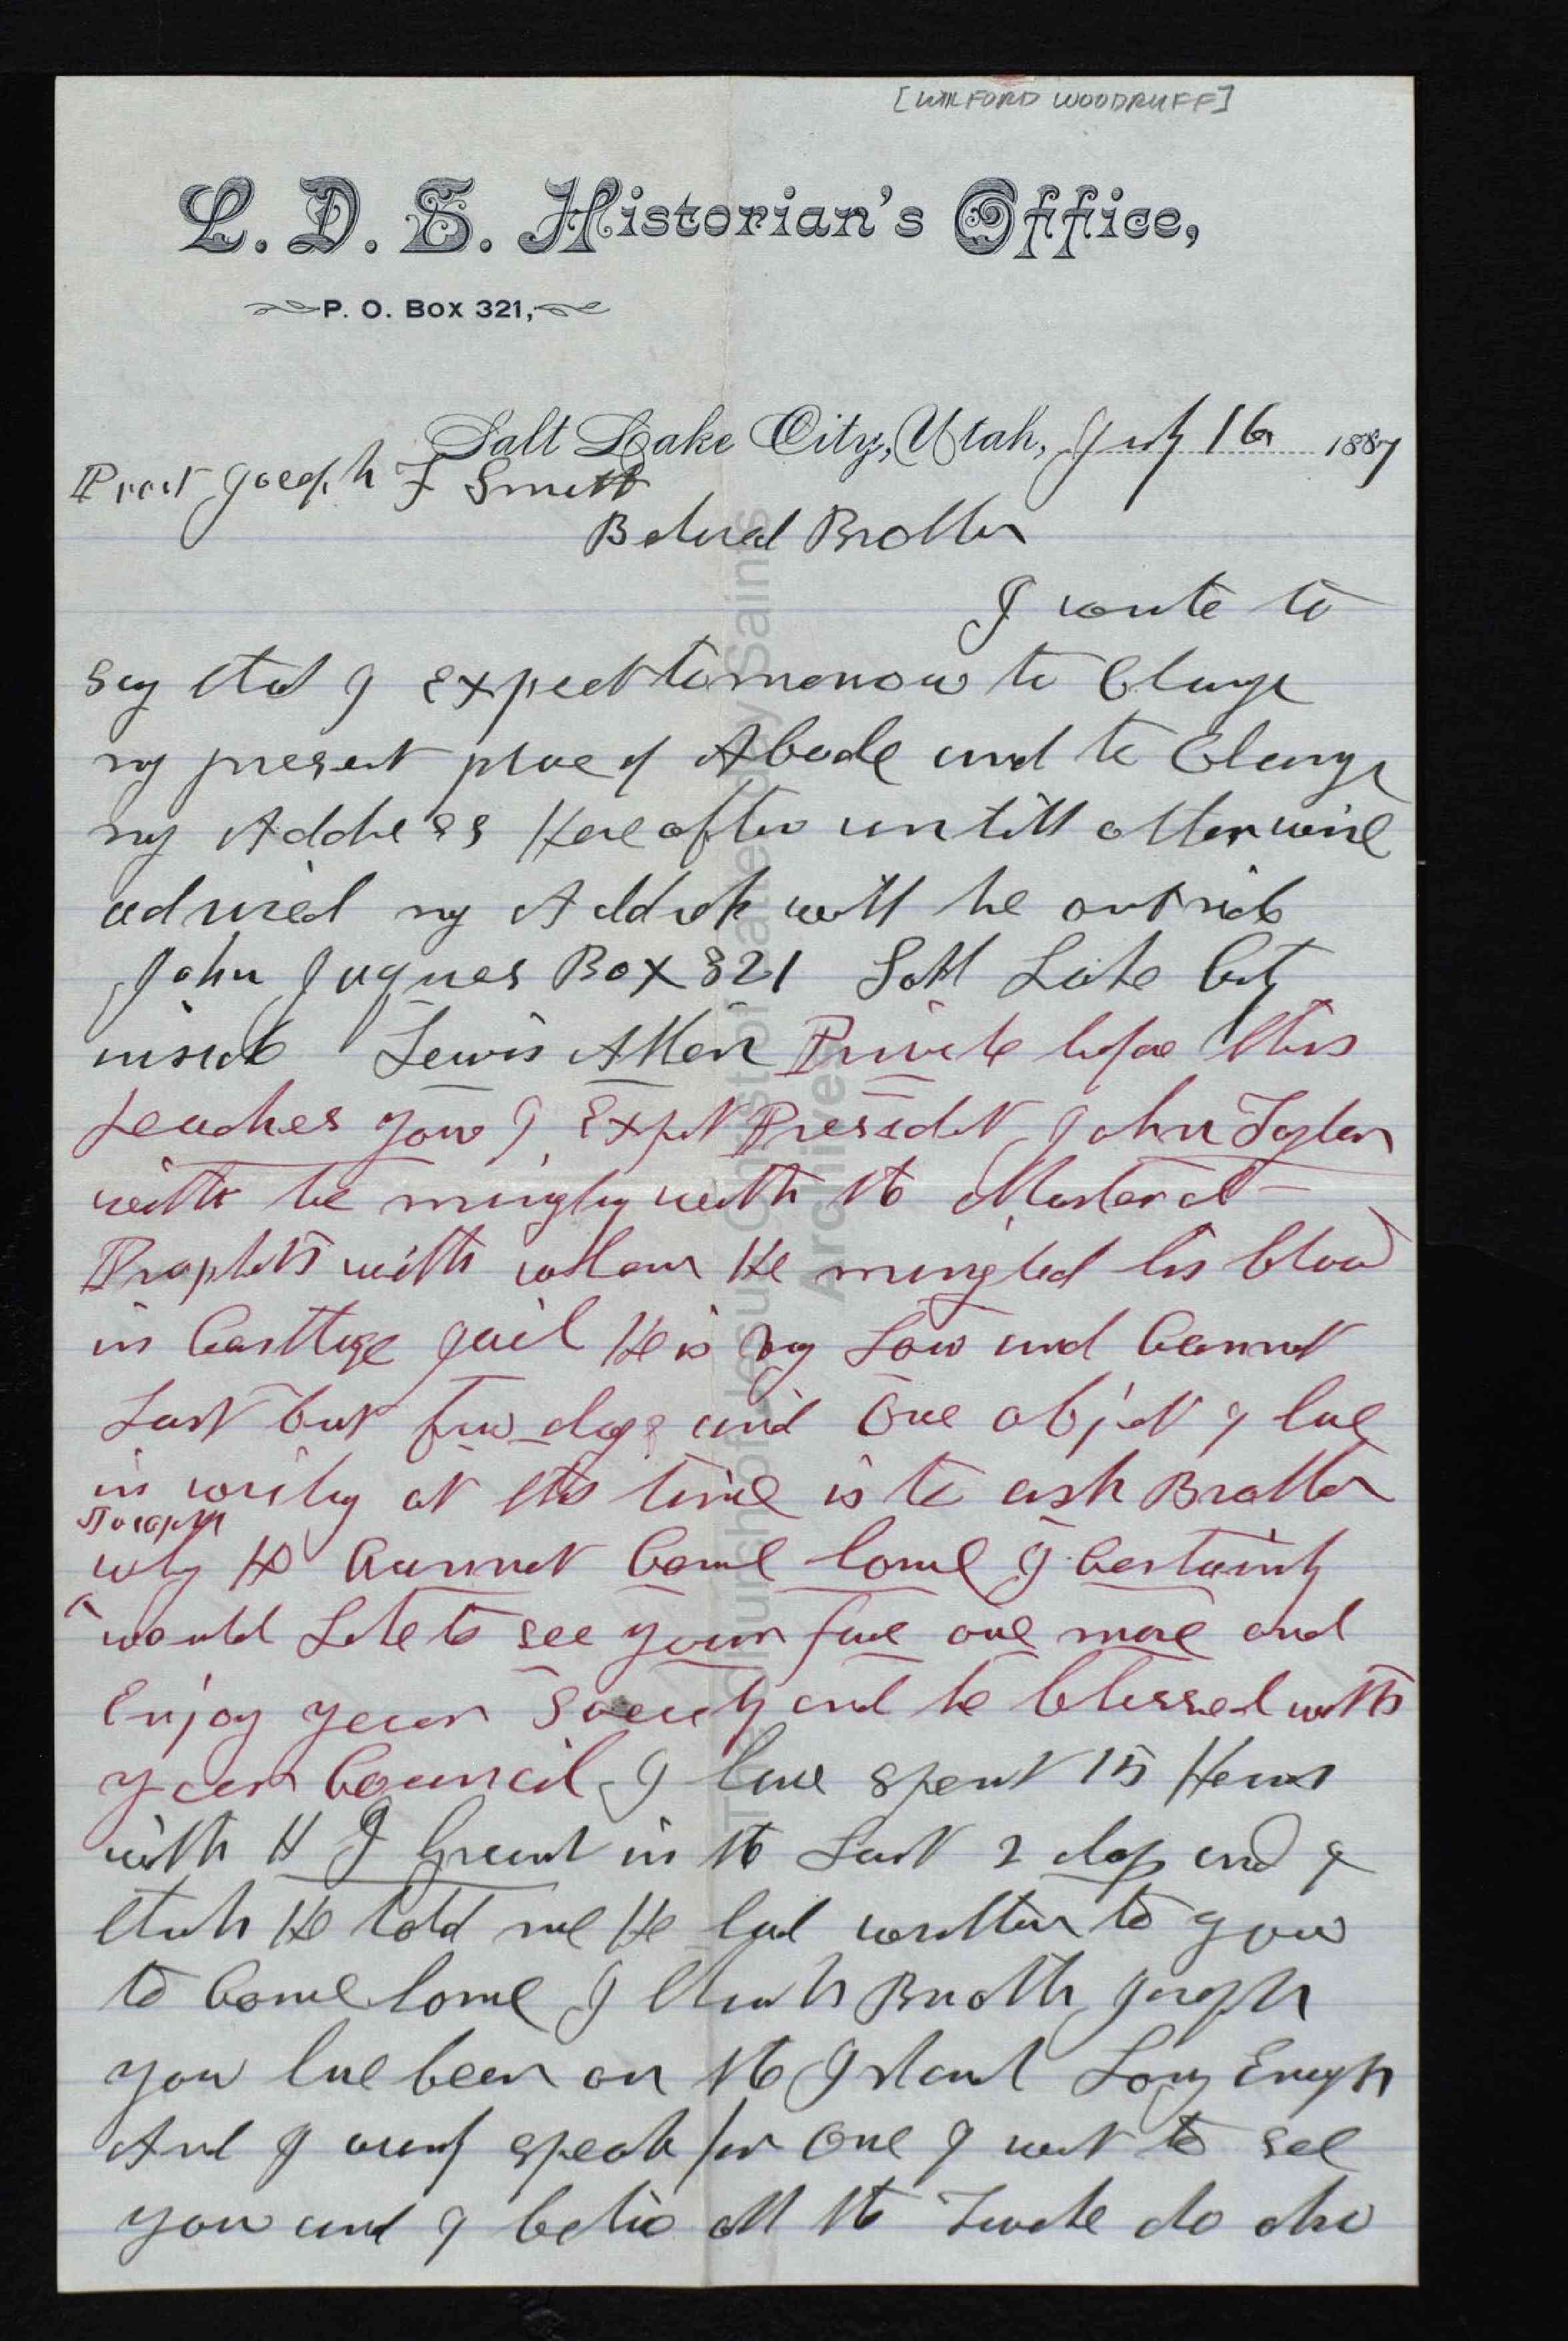 [WILFORD WOODRUFF]
L. D. S. Historian's Office,
P. O. Box 321,
Salt Lake City, Utah, July 16 1887
Prest Joseph F Smith
Beloved Brother
I wrote to
say that I expect tomorrow to Change
my present place of Abode and to Change
my Address Hereafter untill otherwise
advised my Address will be outside
John Jaques Box 321 Salt Lake City
inside Lewis Allen Private before this
reaches you I Expet Presedet John Taylor
will be mingling with the Martered
Prophets with whom He mingled his blood
in Carthage jail He is vry Low and Cannot
Last but few days and One objet I have
in writing at this time is to ask Brother
Joseph
why He Cannot Come home I Certainly
would Like to see your face one more and
Enjoy your Society and be blessed with
your Council I have spent 15 Hours
with H J Grant in the Last 2 days and I
think He told me He had written to you
to Come home I think Brother Joseph
you have been on the Island Long Enough
And I speak for One I want to see
you and I believe all the Twelve do also
The Church of Jesus Christ of Latter-day Saints
Archives